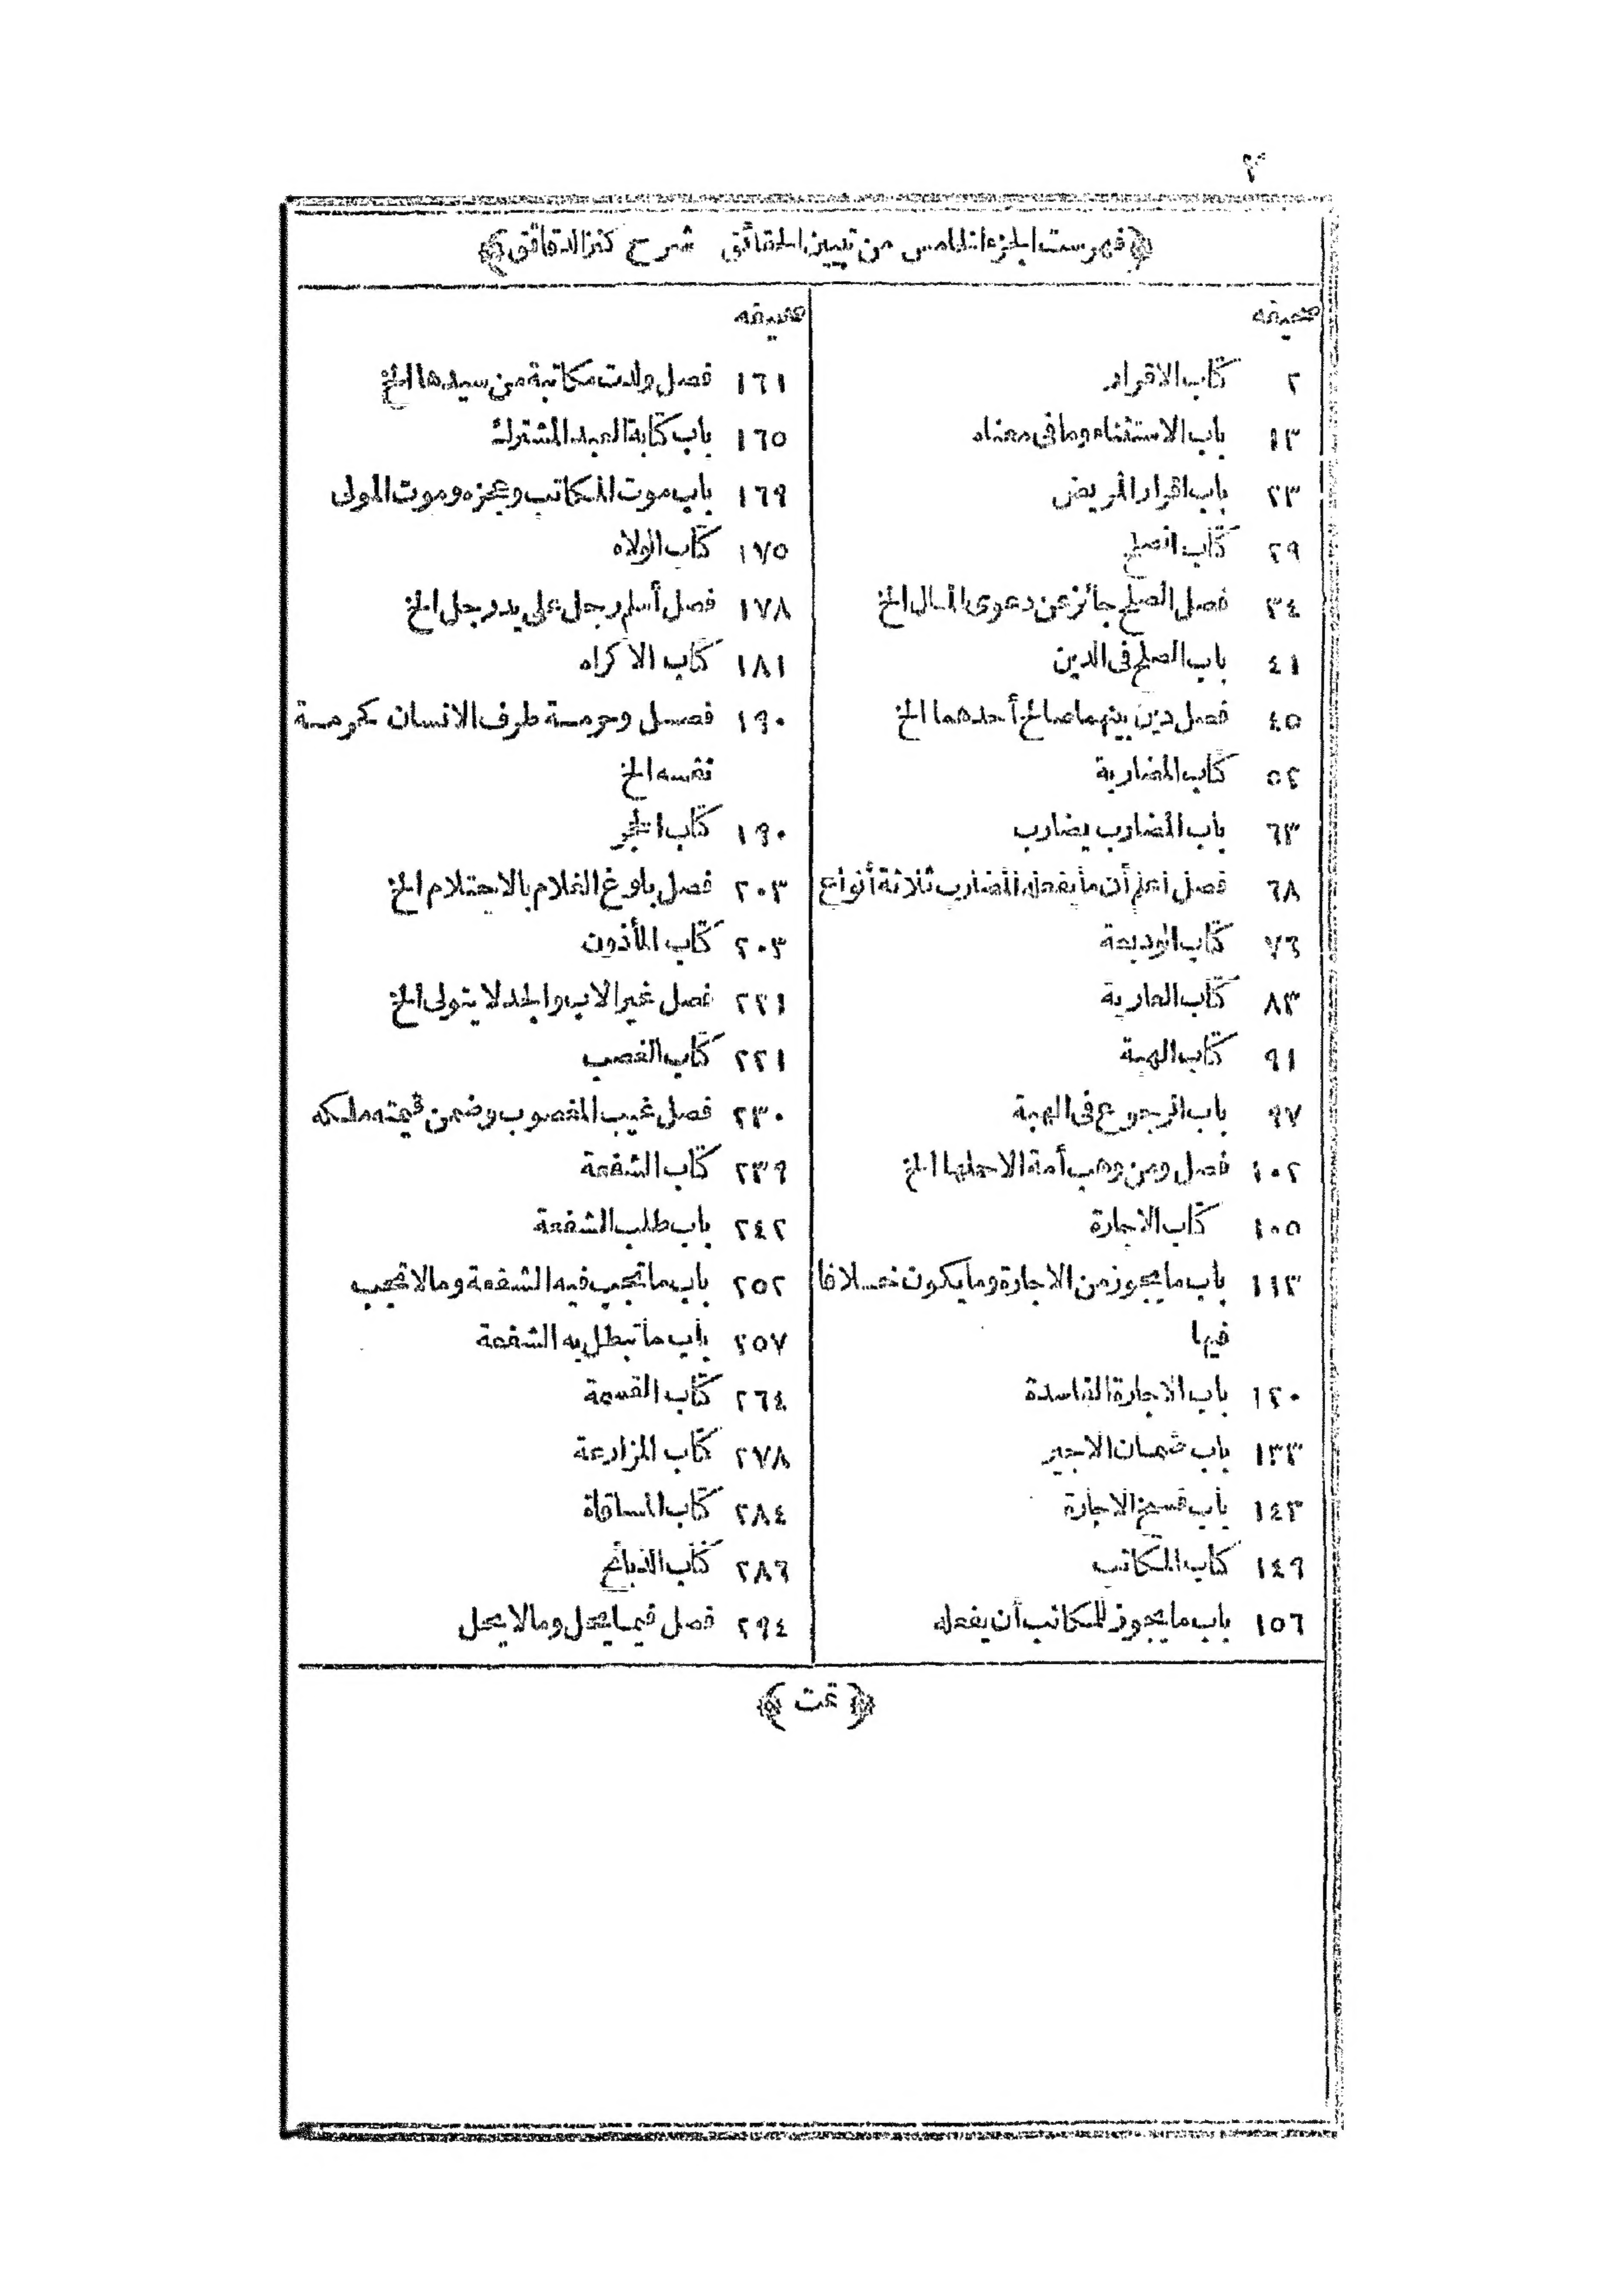 ٢
﴿فهرست الجزء الخامس من تبيين الحقائق شرح كنز الدقائق﴾
صحيفه
٢ كتاب الاقرار
١٣ باب الاستثناء وما فى معناه
٢٣ باب اقرار المريض
٢٩ كتاب الصلح
٣٤ فصل الصلح جائز عن دعوى المال الخ
٤١ باب الصلح فى الدين
٤٥ فصل دين بينهما صالح أحدهما الخ
٥٢ كتاب المضاربة
٦٣ باب المضارب يضارب
٦٨ فصل اعلم أن ما يفعله المضارب ثلاثة أنواع
٧٦ كتاب الوديعة
٨٣ كتاب العارية
٩١ كتاب الهبة
٩٧ باب الرجوع فى الهبة
١٠٢ فصل ومن وهب أمة الا حملها الخ
١٠٥ كتاب الاجارة
١١٣ باب ما يجوز من الاجارة وما يكون خلافا
فيها
١٢٠ باب الاجارة الفاسدة
١٣٣ باب ضمان الاجير
١٤٣ باب فسخ الاجارة
١٤٩ كتاب المكاتب
١٥٦ باب ما يجوز للمكاتب أن يفعله
صحيفه
١٦١ فصل ولدت مكاتبة من سيدها الخ
١٦٥ باب كتابة العبد المشترك
١٦٩ باب موت المكاتب وعجزه وموت المولى
١٧٥ كتاب الولاء
١٧٨ فصل أسلم رجل على يد رجل الخ
١٨١ كتاب الاكراه
١٩٠ فصل وحرمة طرف الانسان كحرمة
نفسه الخ
١٩٠ كتاب الحجر
٢٠٣ فصل بلوغ الغلام بالاحتلام الخ
٢٠٣ كتاب المأذون
٢٢١ فصل غير الاب والجد لا يتولى الخ
٢٢١ كتاب الغصب
٢٣٠ فصل غيب المغصوب وضمن قيمته ملكه
٢٣٩ كتاب الشفعة
٢٤٢ باب طلب الشفعة
٢٥٢ باب ما تجب فيه الشفعة وما لا تجب
٢٥٧ باب ما تبطل به الشفعة
٢٦٤ كتاب القسمة
٢٧٨ كتاب المزارعة
٢٨٤ كتاب المساقاة
٢٨٦ كتاب الذبائح
٢٩٤ فصل فيما يحل وما لا يحل
﴿تمت﴾